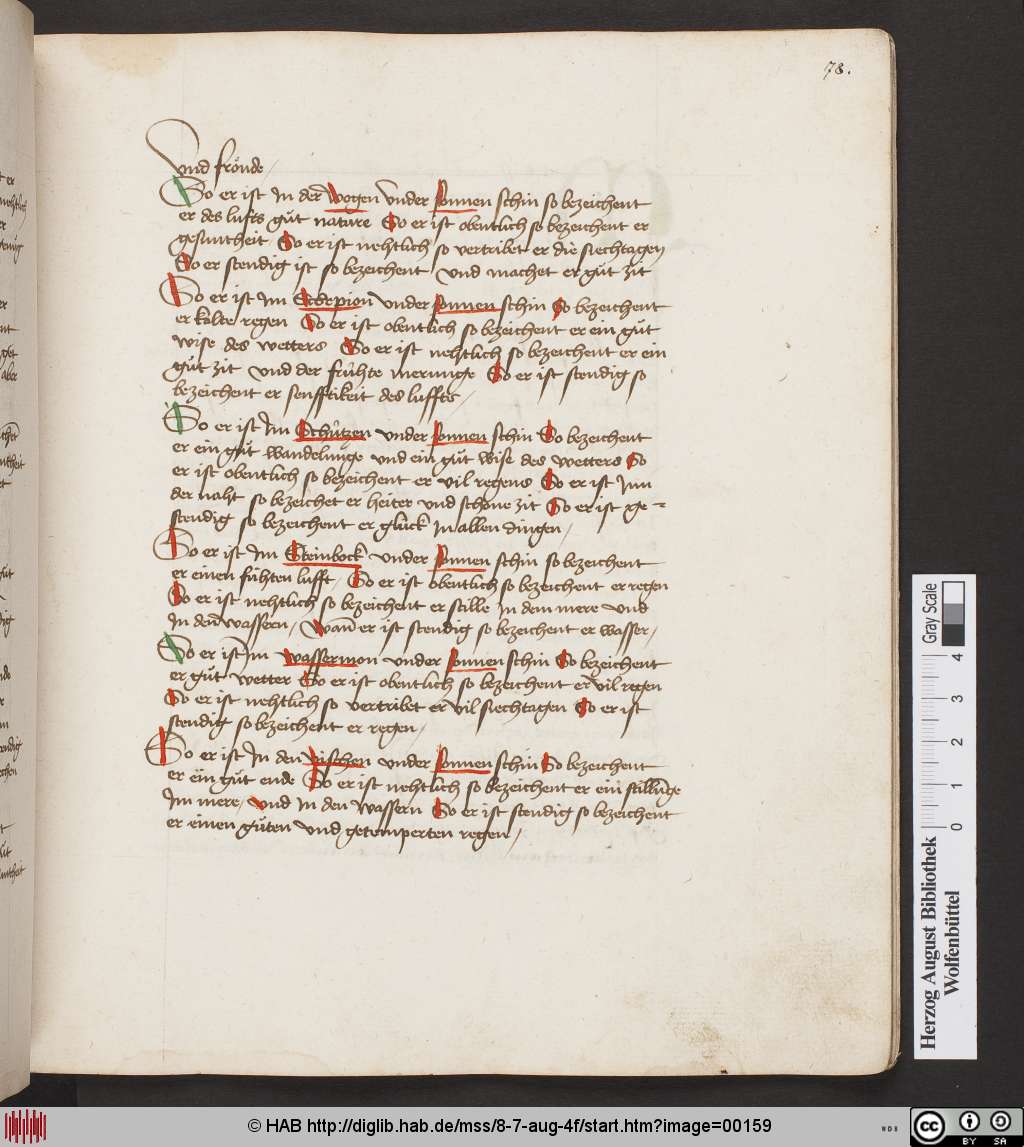 78.
Vnd frönde /
So er ist In der wogen vnder sonnen schin so bezeichent
er des lufts gůt nature So er ist obentlich so bezeichent er
gesuntheit So er ist nehtlich so vertribet er die siechtagen
So er stendig ist so bezeichent vnd machet er gůt zit
So er ist Im Scorpion vnder sonnen schin So bezeichent
er kalte regen So er ist obentlich so bezeichent er ein gůt
wise des wetters So er ist nehtlich so bezeichent er ein
gůt zit vnd der frůhte merunge So er ist stendig so
bezeichent er senfftikeit des luffts /
So er ist Im Schützen vnder sonnen schin So bezeichent
er ein gůt wandelunge vnd ein gůt wise des wetters So
er ist obentlich so bezeichent er vil regens So er ist Inn
der naht so bezeichet er heiter vnd schöne zit So er ist ge=
stendig so bezeichent er glück In allen dingen /
So er ist Im Steinbock vnder sonnen schin so bezeichent
er einen fühten lufft / So er ist obentlich so bezeichent er regen
So er ist nehtlich so bezeichent er stille In dem mere vnd
In den wassern / Wañ er ist stendig so bezeichent er wasser /
So er ist Im wassermon vnder sonnen schin So bezeichent
er gůt wetter So er ist obentlich so bezeichent er vil regen
So er ist nehtlich so vertribet er vil siechtagen So er ist
stendig so bezeichent er regen /
So er ist In den vischen vnder sonnen schin So bezeichent
er ein gůt ende So er ist nehtlich so bezeichent er ein stillũge
Im mere / vnd In den wassern So er ist stendig so bezeichent
er einen gůten vnd getemperten regen /
Herzog August Bibliothek
Wolfenbüttel
0 1 2 3 4
Gray Scale
© HAB http://diglib.hab.de/mss/8-7-aug-4f/start.htm?image=00159
WDB
cc BY SA